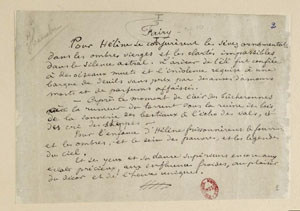 2
Fairy
Pour Hélène se conjurèrent les sèves ornementales
dans les ombres vierges et les clartés impassibles
dans le silence astral. L'ardeur de l'été fut confiée
à des oiseaux muets et l'indolence requise à une
barque de deuils sans prix par des anses d'amours
morts et de parfums affaissés.
— Après le moment de l'air des bûcheronnes
à la rumeur du torrent sous la ruine des bois
de la sonnerie des bestiaux à l'écho des vals, et
des cris des steppes. —
Pour l'enfance d'Hélène frissonnèrent les
et les ombres, et le sein des pauvres, et les légendes
du ciel.
Et ses yeux et sa danse supérieurs encore aux
éclats précieux, aux influences froides, au plaisir
du décor et de l'heure uniques.